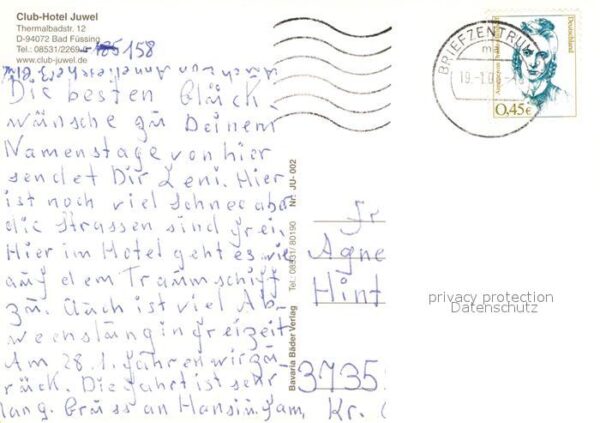 Club-Hotel Juwel
Thermalbadstr. 12
D-94072 Bad Füssing
Tel.: 08531/2269-0
www.club-juwel.de
158
Die besten Glück-
wünsche zu Deinem
Namenstage von hier
sendet Dir Leni. Hier
ist noch viel Schnee aber
die Strassen sind frei.
Hier im Hotel geht es wie
auf dem Traumschiff
zu. Auch ist viel Ab
wechslung in Freizeit
Am 28.1. fahren wir zu-
rück. Die Fahrt ist sehr
lang. Gruss an Hansi
Bavaria Bäder Verlag Tel.: 08531/ 80190 Nr. JU- 002
BRIEFZENTRUM
Deutschland
0,45€
Fr
Agne
Hint
3735
Kr.
privacy protection
Datenschutz